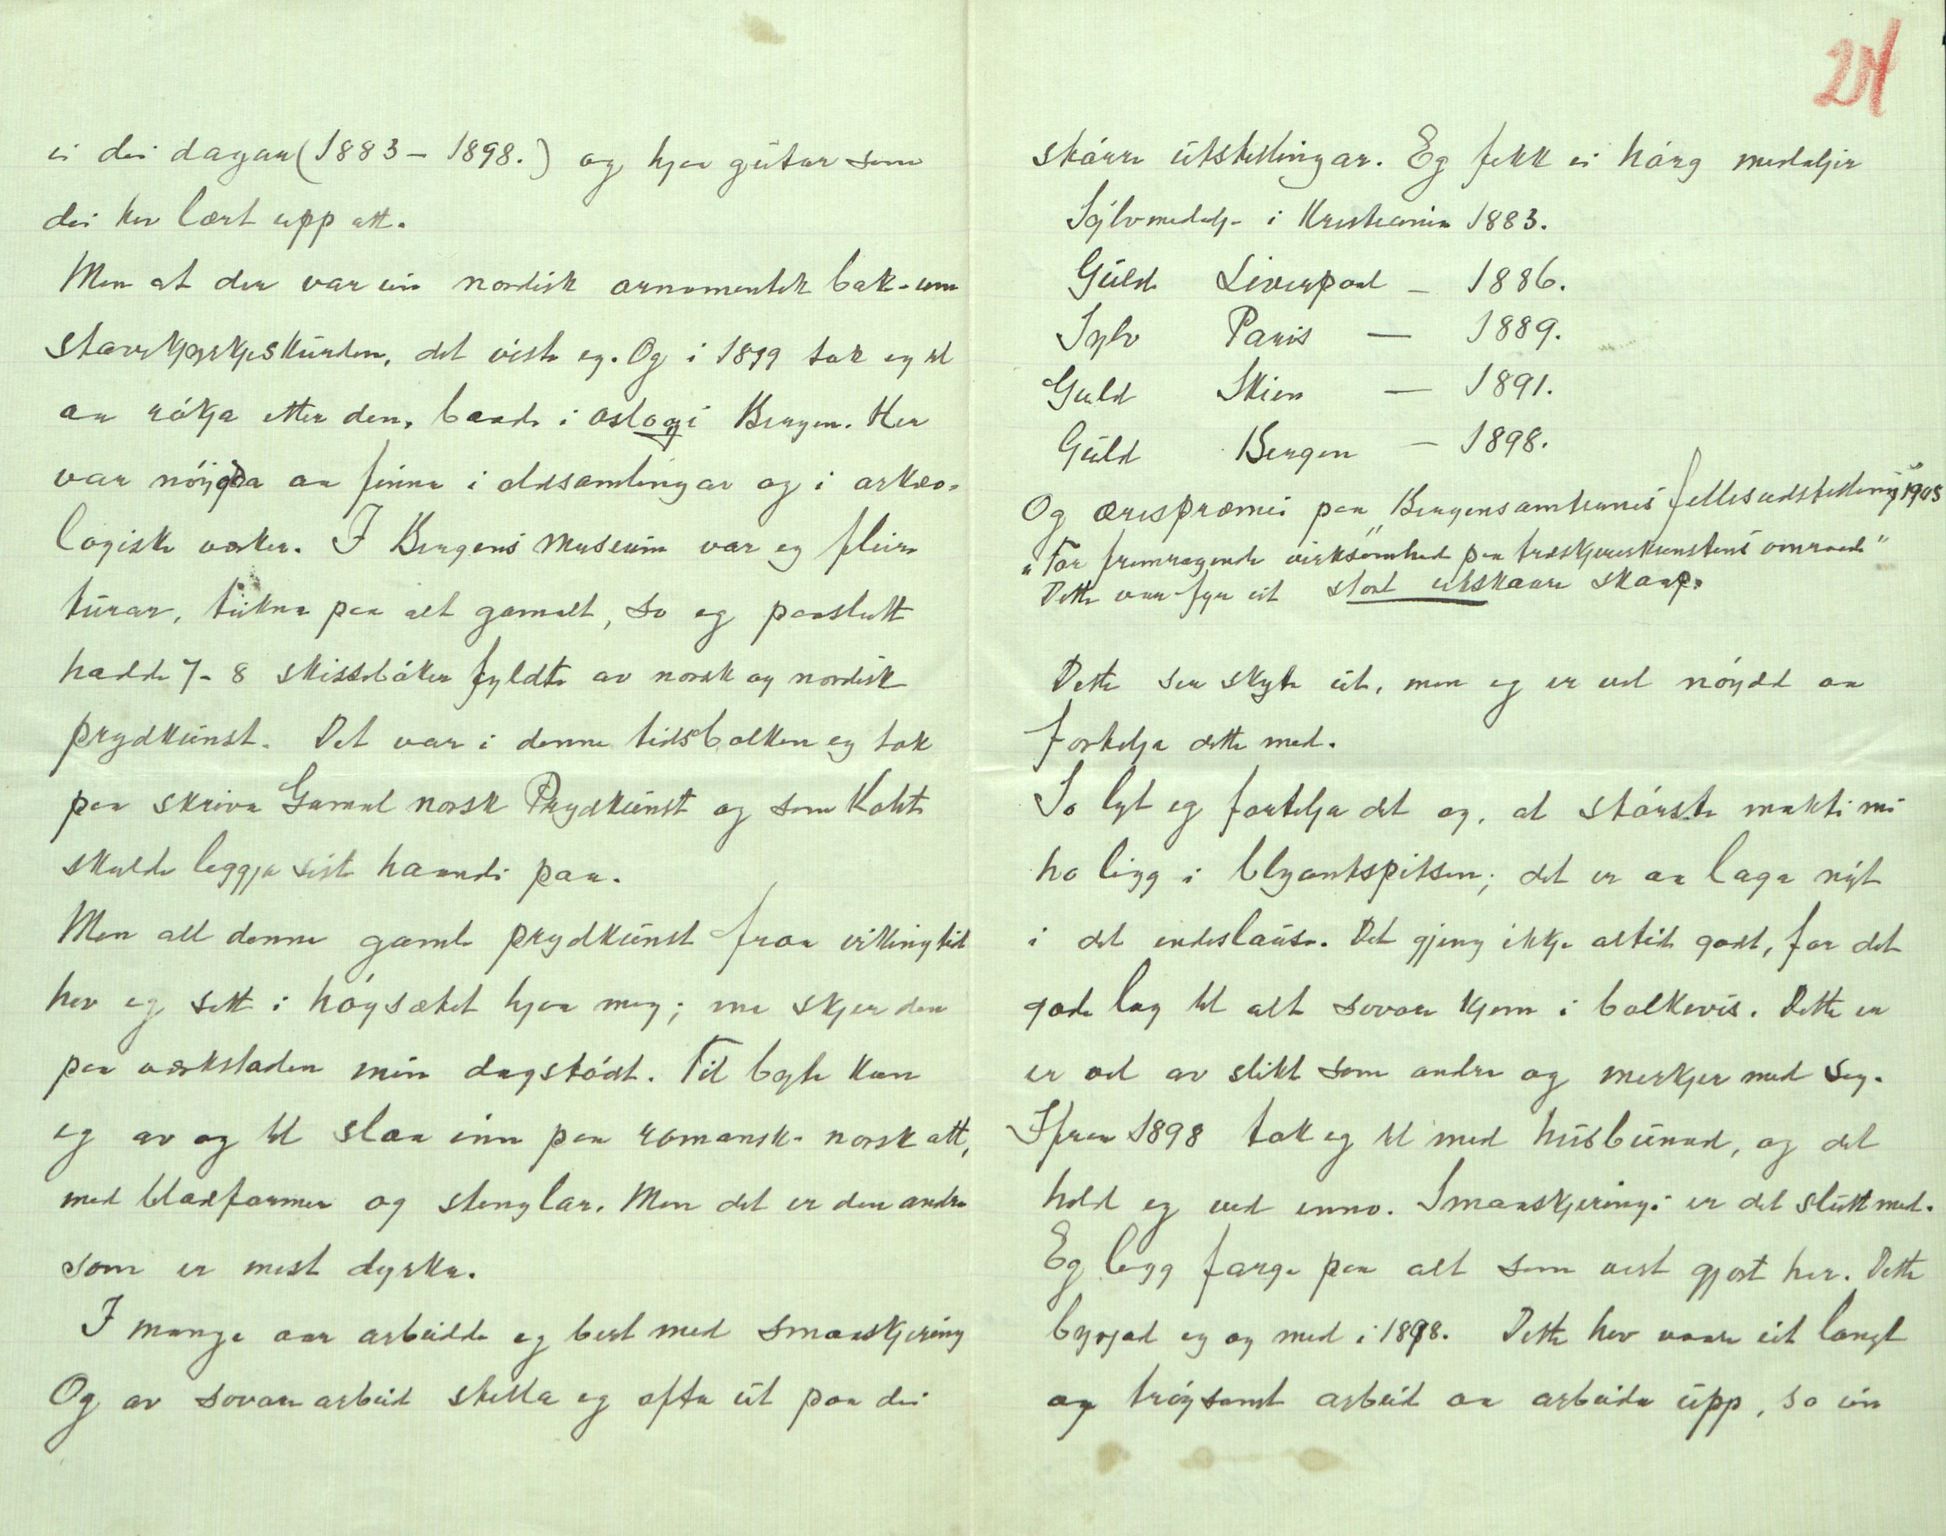 i dei dagar (1883 – 1898.) og hjaa gutar som
dei hev lært upp att.
Men at der var ein nordisk ornamentik bak-um
stavkyrkjeskurden, det viste eg. Og i 1899 tok eg til
aa rókja etter den, baade i Oslo og i Bergen. Her
var nóygda aa finna i oldsamlingar og i arkæo-
logiske verker. I Bergens Museum var eg fleire
turar, tikna paa alt gamalt, so eg paaslutt
hadde 7-8 skissebóker fyldte av norsk og nordisk
prydkunst. Det var i denne tidsbolken eg tok
paa skriva Gamal norsk Prydkunst og som Kohte
skulde leggja siste haandi paa.
Men all denne gamle prydkunst fraa vikingtid
hev eg sett i hógsætet hjaa meg; me skjer den
paa verkstaden min dagstódt. Til byte kan
eg av og til slaa inn paa romansk-norsk att,
med bladformer og stenglar. Men det er den andre
som er mest dyrka.
I mange aar arbeidde eg best med smaaskjering
Og av sovore arbeid stella eg ofta ut paa dei
24
stórre utstellingar. Eg fekk ei hórg medaljer
Sylvmedalje i Kristiania 1883.
Guld Liverpool – 1886.
Sylv Paris — 1889.
Guld Skien — 1891.
Guld Bergen – 1898.
Og ærespræmi paa "Bergensamternes fellesudstelling" 1905
"For fremragende virksomhed paa træskjærerkunstens omraade"
Dette var fyr eit stort utskaare skaap.
Dette ser skyte ut, men eg er vel nóydd aa
fortelja dette med.
So lyt eg fortelja det og, at stórste makti mi
ho ligg i blyantspitsen; det er aa laga nýt
i det endeslause. Det gjeng ikkje altid godt, for det
gode lag til alt sovore kjem i bolkevis. Dette er
er vel av slikt som andre og merkjer med seg.
Ifraa 1898 tok eg til med húsbunad, og det
held eg ved enno. Smaaskjeringi er det slutt med.
Eg legg farge paa alt som vert gjort her. Dette
byrjad eg og med i 1898. Dette hev vaare eit langt
og tróysamt arbeid aa arbeida upp, so ein